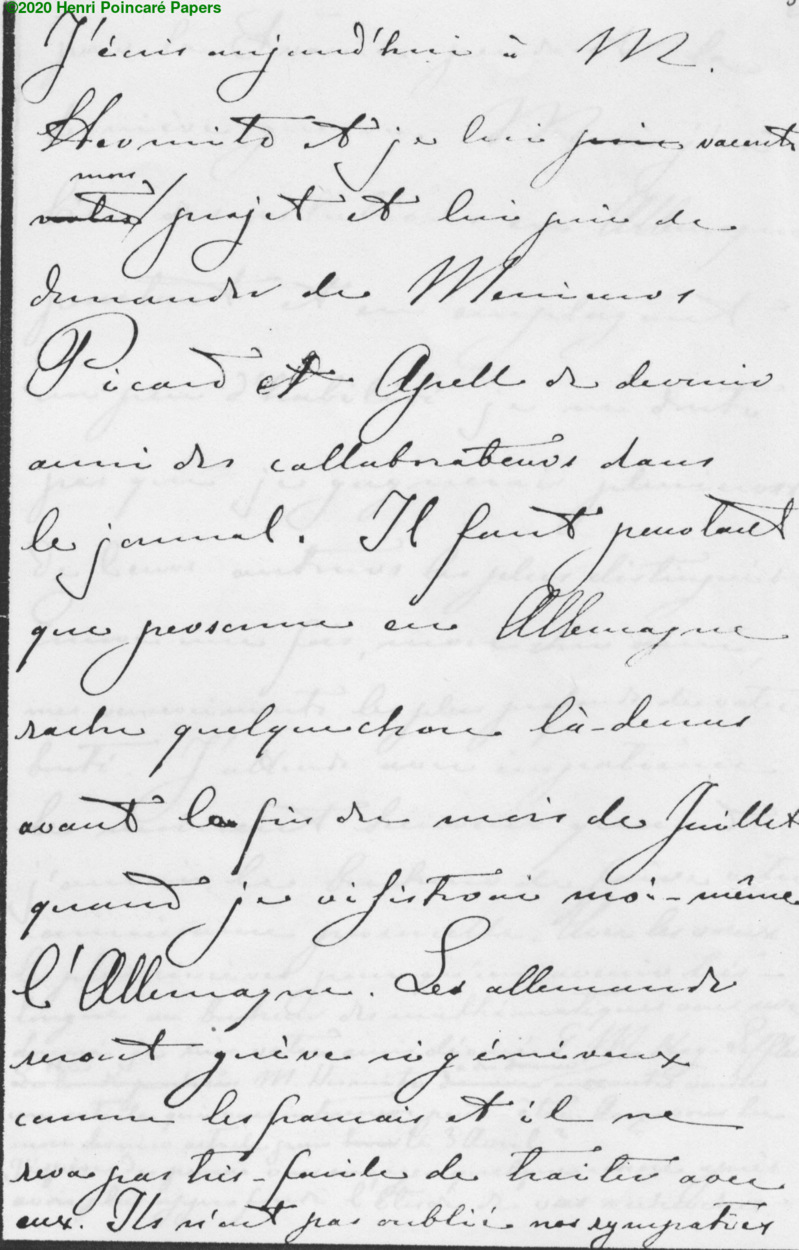 ©2020 Henri Poincaré Papers
J'écris aujourd'hui à M.
Hermite et je lui prie raconte
mon
votre projet et lui prie de
demander de Messieurs
Picard et Apell de devenir
aussi des collaborateurs dans
le journal. Il faut pourtant
que personne en Allemagne
sache quelquechose là-dessus
avant la fin du mois de Juillet
quand je visiterai moi-même
l'Allemagne. Les allemands
seront guère si généreux
comme les français et il ne
sera pas très-facile de traiter avec
eux. Ils n'ont pas oublié nos sympathies